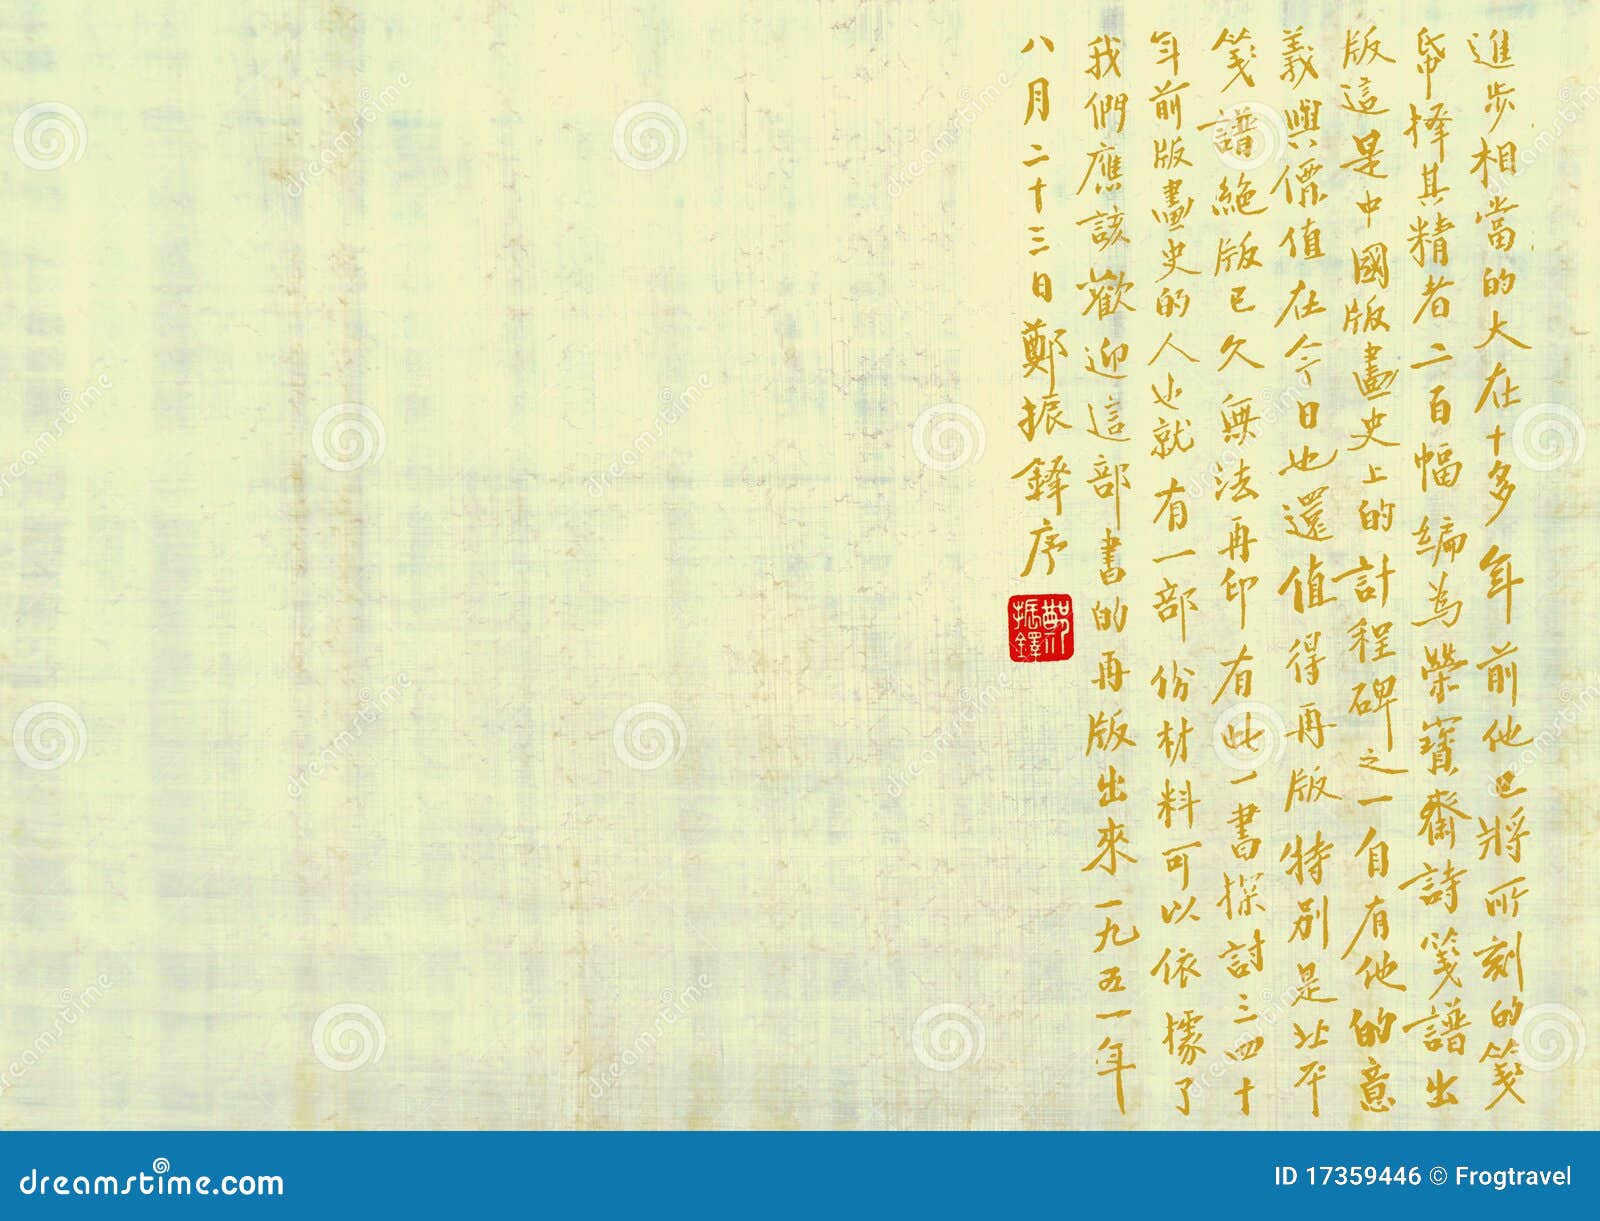 進步相當的大在十多年前他已將所刻的箋
帋擇其精者二百幅編為榮寶齋詩箋譜出
版這是中國版畫史上的計程碑之一自有他的意
義與價值在今日也還值得再版特別是北平
箋譜絕版已久無法再印有此一書探討三四十
年前版畫史的人也就有一部份材料可以依據了
我們應該歡迎這部書的再版出來一九五一年
八月二十三日鄭振鐸序
鄭振鐸
dreamstime.com
ID 17359446 © Frogtravel